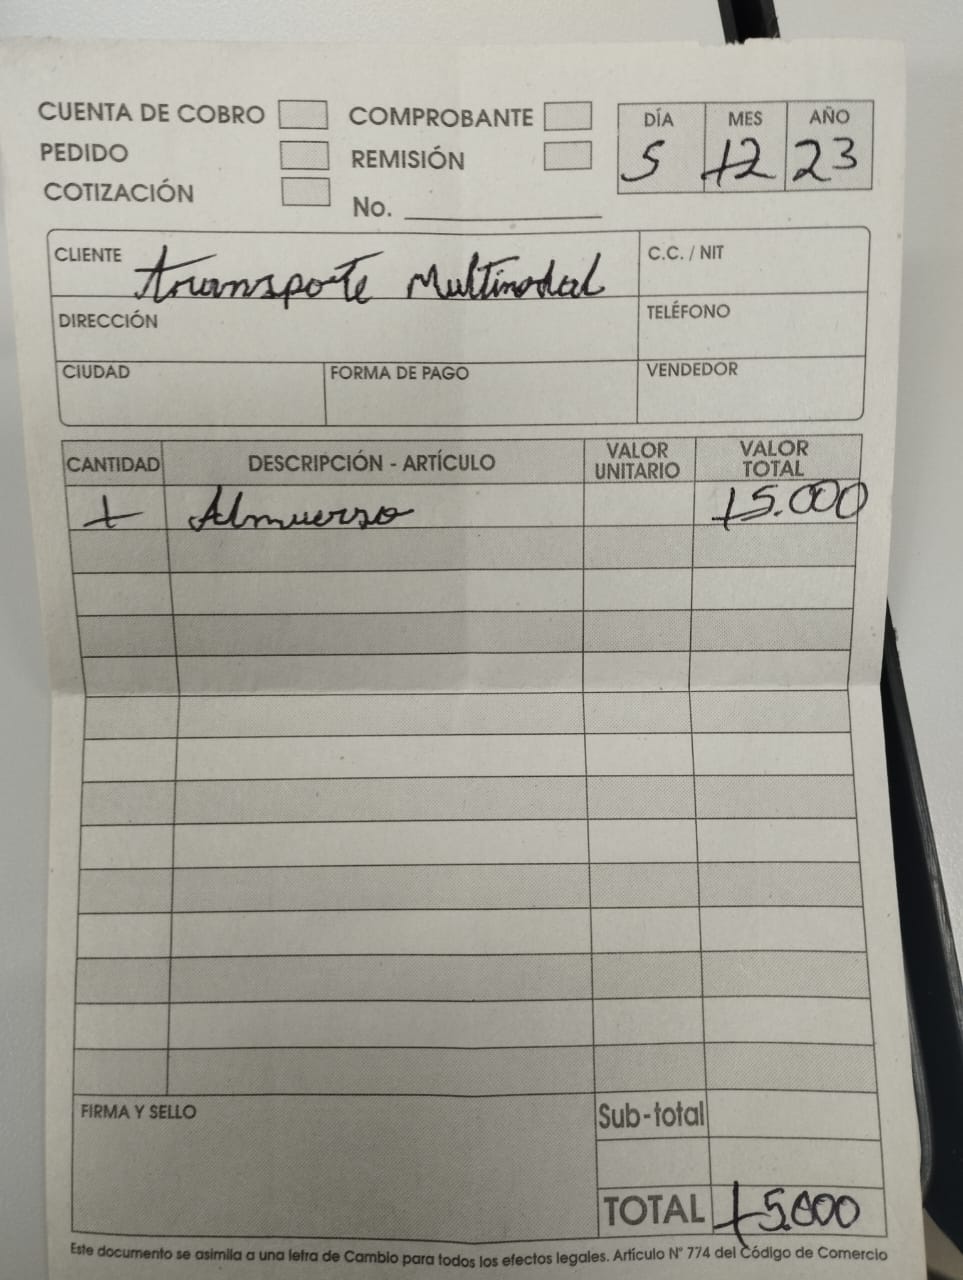 CUENTA DE COBRO COMPROBANTE DÍA MES AÑO
PEDIDO REMISIÓN 5 12 23
COTIZACIÓN No.
CLIENTE transporte Multimodal C.C. / NIT
DIRECCIÓN TELÉFONO
CIUDAD FORMA DE PAGO VENDEDOR
CANTIDAD DESCRIPCIÓN - ARTÍCULO VALOR UNITARIO VALOR TOTAL
1 Almuerzo 15.000
FIRMA Y SELLO Sub-total
TOTAL 15.000
Este documento se asimila a una letra de Cambio para todos los efectos legales. Artículo N° 774 del Código de Comercio